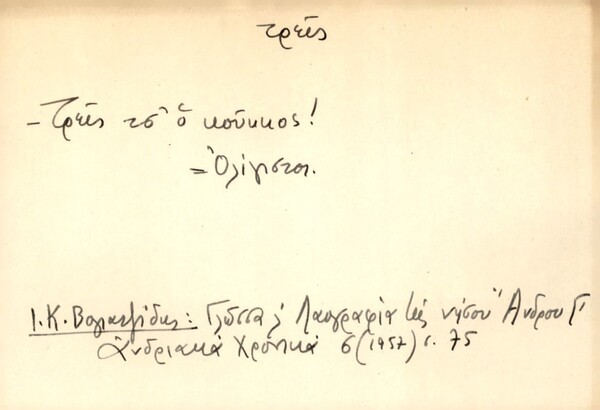 τρεῖς
- Τρεῖς τσ' ὁ κοῦκκος!
= Ὀλίγιστοι.
Ι. Κ. Βογιατζίδης: Γλῶσσα ϗ Λαογραφία τῆς νήσου Ἄνδρου Γ'
Ἀνδριακὰ Χρονικὰ 6 (1957) σ. 75